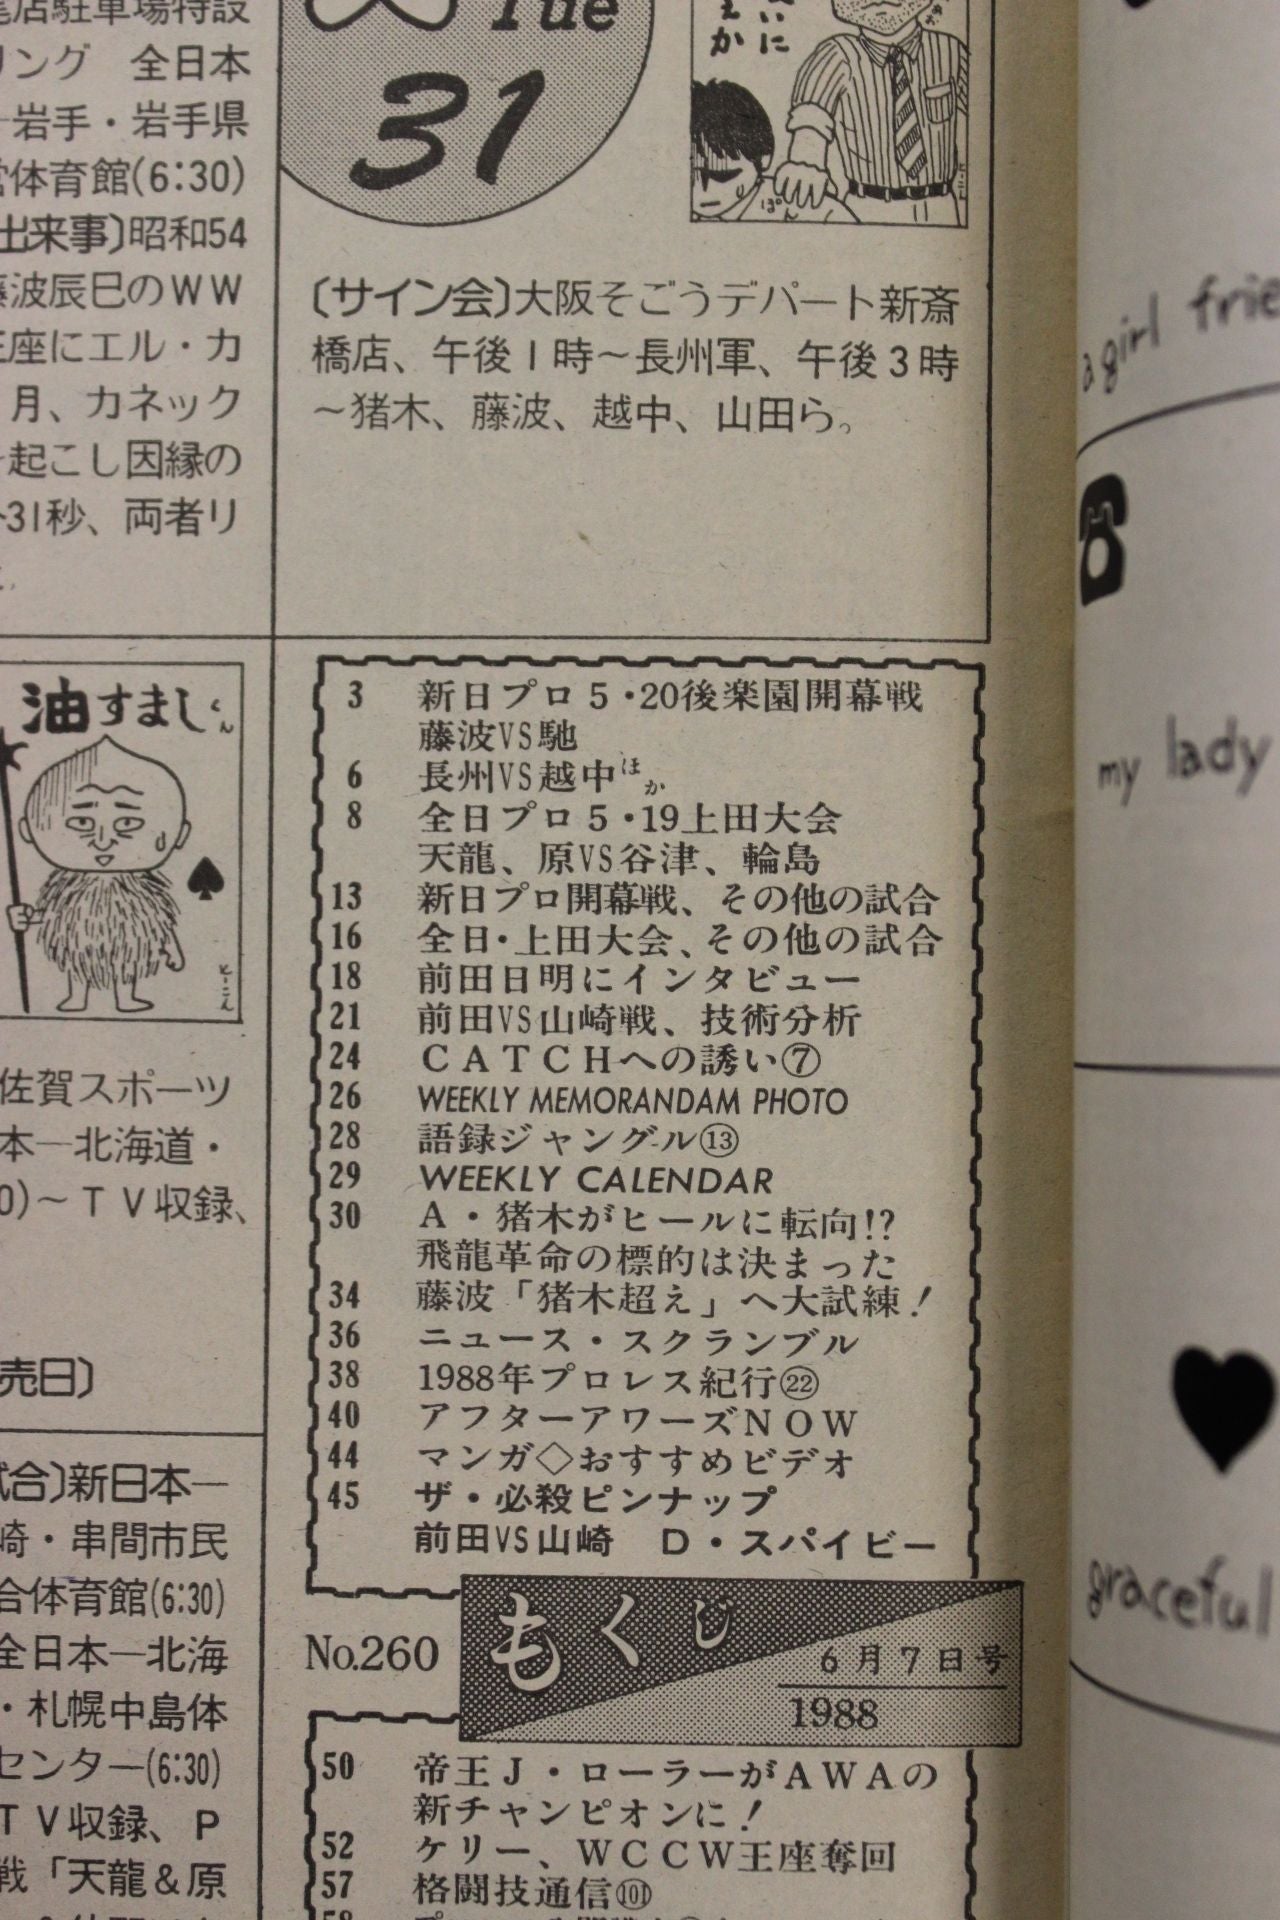 店駐車場特設
リング　全日本
岩手・岩手県
営体育館(6:30)
出来事〕昭和54
藤波辰巳のWW
王座にエル・カ
月、カネック
起こし因縁の
31秒、両者リ
油すましくん
とーこん
佐賀スポーツ
本―北海道・
0)～ＴＶ収録、
売日〕
試合〕新日本―
崎・串間市民
合体育館(6:30)
全日本―北海
・札幌中島体
センター(6:30)
ＴＶ収録、Ｐ
戦「天龍＆原
Tue
31
いに
か
ぽん
〔サイン会〕大阪そごうデパート新斎
橋店、午後１時～長州軍、午後３時
～猪木、藤波、越中、山田ら。
3 新日プロ５・20後楽園開幕戦
藤波VS馳
6 長州VS越中ほか
8 全日プロ５・19上田大会
天龍、原VS谷津、輪島
13 新日プロ開幕戦、その他の試合
16 全日・上田大会、その他の試合
18 前田日明にインタビュー
21 前田VS山崎戦、技術分析
24 ＣＡＴＣＨへの誘い⑦
26 WEEKLY MEMORANDAM PHOTO
28 語録ジャングル⑬
29 WEEKLY CALENDAR
30 Ａ・猪木がヒールに転向!?
飛龍革命の標的は決まった
34 藤波「猪木超え」へ大試練！
36 ニュース・スクランブル
38 1988年プロレス紀行㉒
40 アフターアワーズＮＯＷ
44 マンガ◇おすすめビデオ
45 ザ・必殺ピンナップ
前田VS山崎　Ｄ・スパイビー
No.260 もくじ 6月7日号
1988
50 帝王Ｊ・ローラーがＡＷＡの
新チャンピオンに！
52 ケリー、ＷＣＣＷ王座奪回
57 格闘技通信(101)
58
a girl frie
my lady
graceful